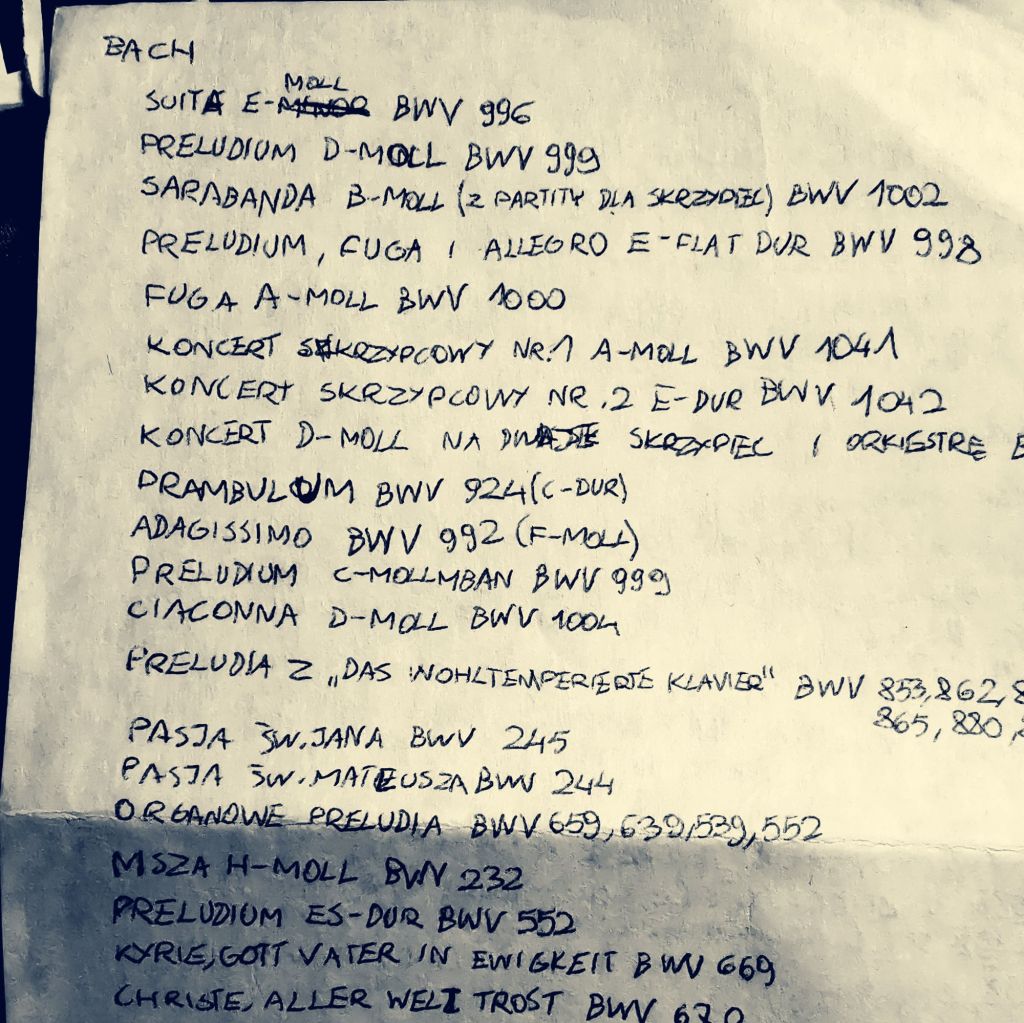 BACH
SUITA E-MOLL BWV 996
PRELUDIUM D-MOLL BWV 999
SARABANDA B-MOLL (Z PARTITY DLA SKRZYPIEC) BWV 1002
PRELUDIUM, FUGA I ALLEGRO E-FLAT DUR BWV 998
FUGA A-MOLL BWV 1000
KONCERT SKRZYPCOWY NR.1 A-MOLL BWV 1041
KONCERT SKRZYPCOWY NR.2 E-DUR BWV 1042
KONCERT D-MOLL NA SKRZYPIEC I ORKIESTRĘ B
PRAMBULUM BWV 924 (C-DUR)
ADAGISSIMO BWV 992 (F-MOLL)
PRELUDIUM BWV 999
CIACONNA D-MOLL BWV 1004
PRELUDIA Z „DAS WOHLTEMPERIERTE KLAVIER" BWV 853, 862, 8
865, 880,
PASJA ŚW. JANA BWV 245
PASJA ŚW. MATEUSZA BWV 244
ORGANOWE PRELUDIA BWV 659, 639, 539, 552
MSZA H-MOLL BWV 232
PRELUDIUM ES-DUR BWV 552
KYRIE, GOTT VATER IN EWIGKEIT BWV 669
CHRISTE, ALLER WELT TROST BWV 670